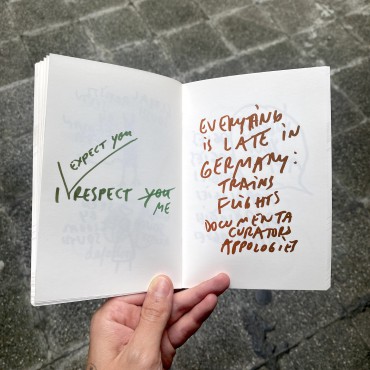 EXPECT YOU
I RESPECT YOU
ME
EVERYTING
iS LATE iN
GERMANY:
TRAiNS
FLiGHTS
DOCUMENTA
CURATORS
APPOLOGiES